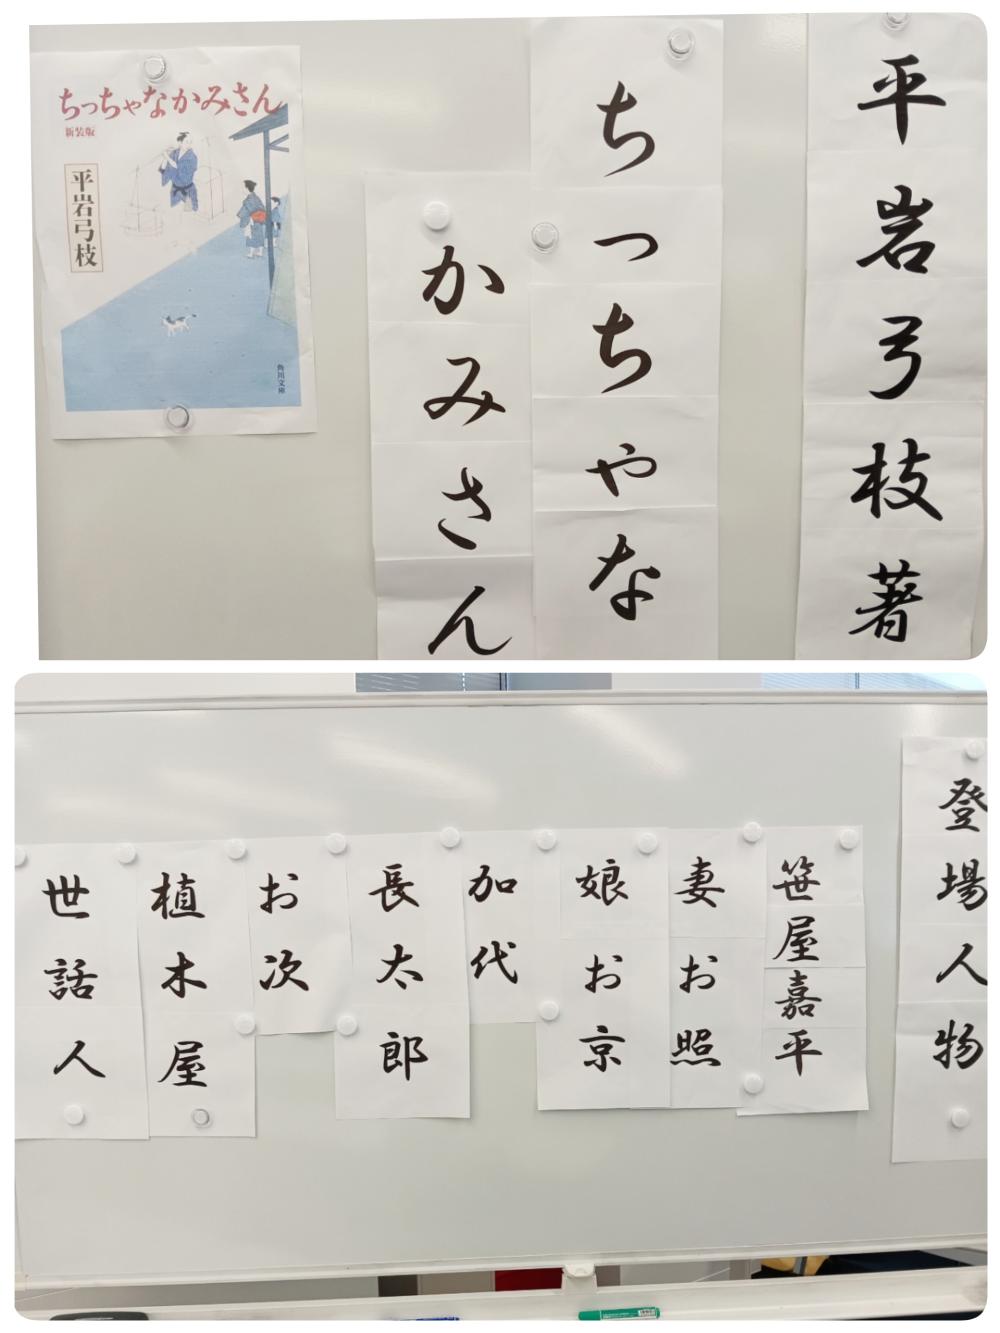 平岩弓枝著
ちっちゃな
かみさん
ちっちゃなかみさん
新装版
平岩弓枝
角川文庫
登場人物
笹屋嘉平
妻お照
娘お京
加代
長太郎
お次
植木屋
世話人